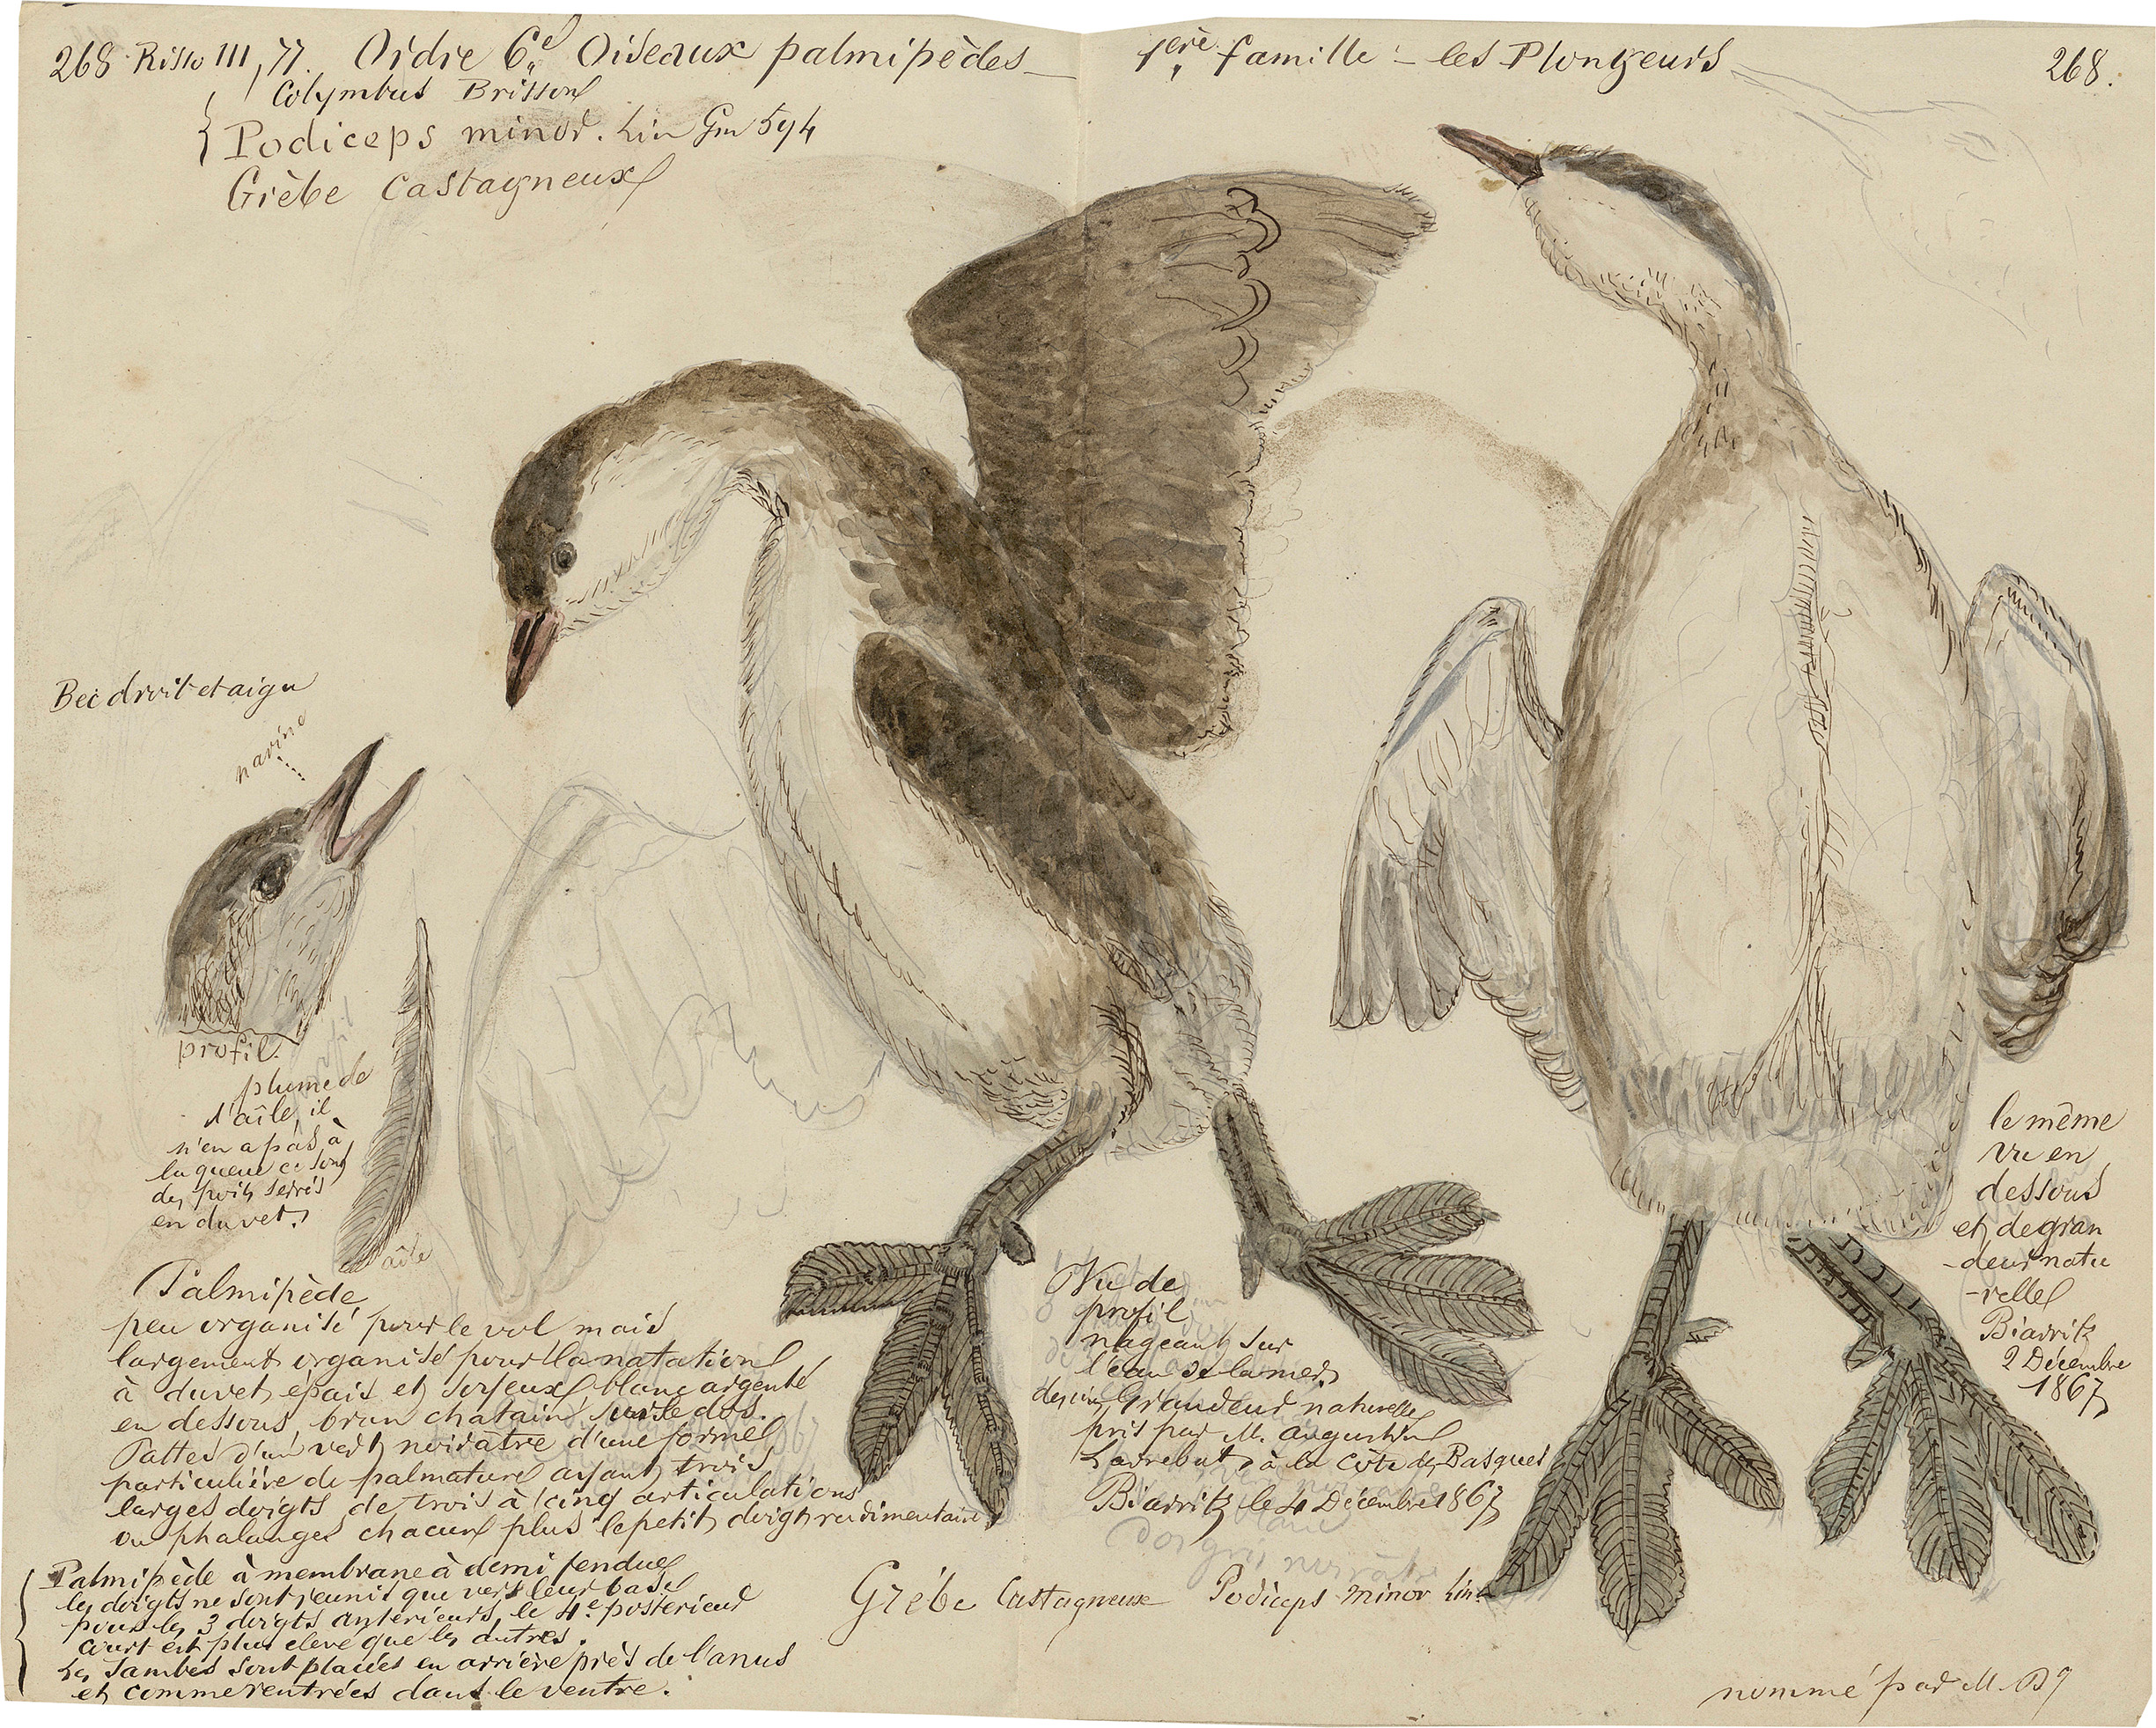 268 Risso III, 77. Ordre 6.e Oiseaux palmipèdes — 1.ère famille — les Plongeurs 268.
Colymbus Brisson
Podiceps minor. Lin Gm 594
Grèbe Castagneux
Bec droit et aigu
narine
profil.
plume de
l'aîle, il
n'en a pas à
la queue ce sont
des poils serrés
en duvet.
aîle
Palmipède
peu organisé pour le vol mais
largement organisé pour la natation
à duvet épais et soyeux blanc argenté
en dessous, brun chatain sur le dos.
Pattes d'un vert noirâtre d'une forme
particulière de palmature ayant trois
larges doigts de trois à cinq articulations
ou phalanges chacun plus le petit doigt rudimentaire
Palmipède à membrane à demi fendue
les doigts ne sont réunis que vers leur base
pour les 3 doigts antérieurs, le 4.e postérieur
court est plus élevé que les autres.
Les Jambes sont placées en arrière près de l'anus
et comme rentrées dans le ventre.
Vu de
profil
nageant sur
l'eau de la mer
Grandeur naturelle
pris par M. Augustin
Ladrebat à la côte des Basques
Biarritz le 4 Décembre 1867
Grèbe Castagneux Podiceps minor Lin.
le même
vu en
dessous
et de gran
-deur natu
-relle
Biarritz
2 Décembre
1867
nommé par M. D